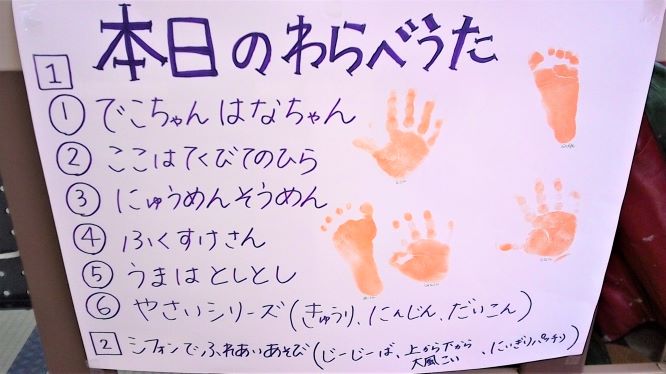 本日のわらべうた
1
① でこちゃん はなちゃん
② ここはてくびてのひら
③ にゅうめんそうめん
④ ふくすけさん
⑤ うまはとしとし
⑥ やさいシリーズ(きゅうり、にんじん、だいこん)
2 シフォンでふれあいあそび(じーじーば、上から下から 大風こい、にぎりパッチリ)